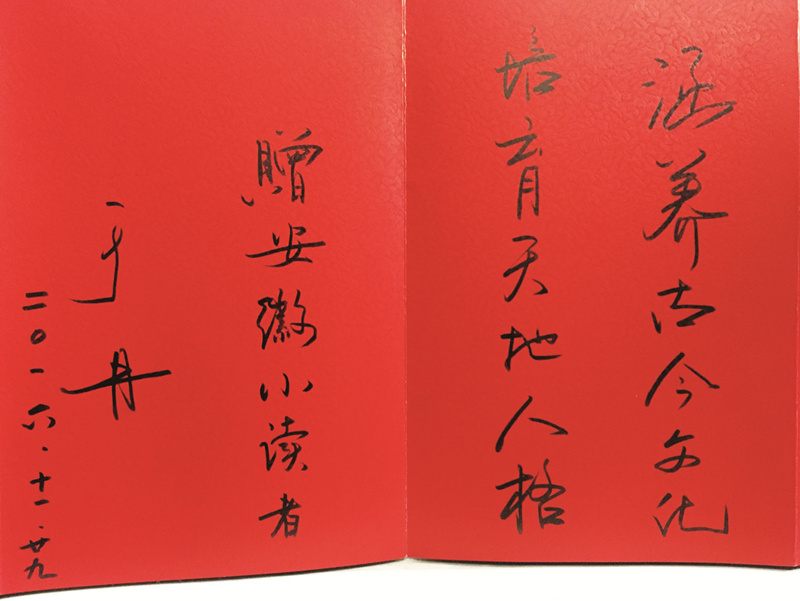 涵养古今文化
培育天地人格
赠安徽小读者
于丹
二〇一六·十一·廿九